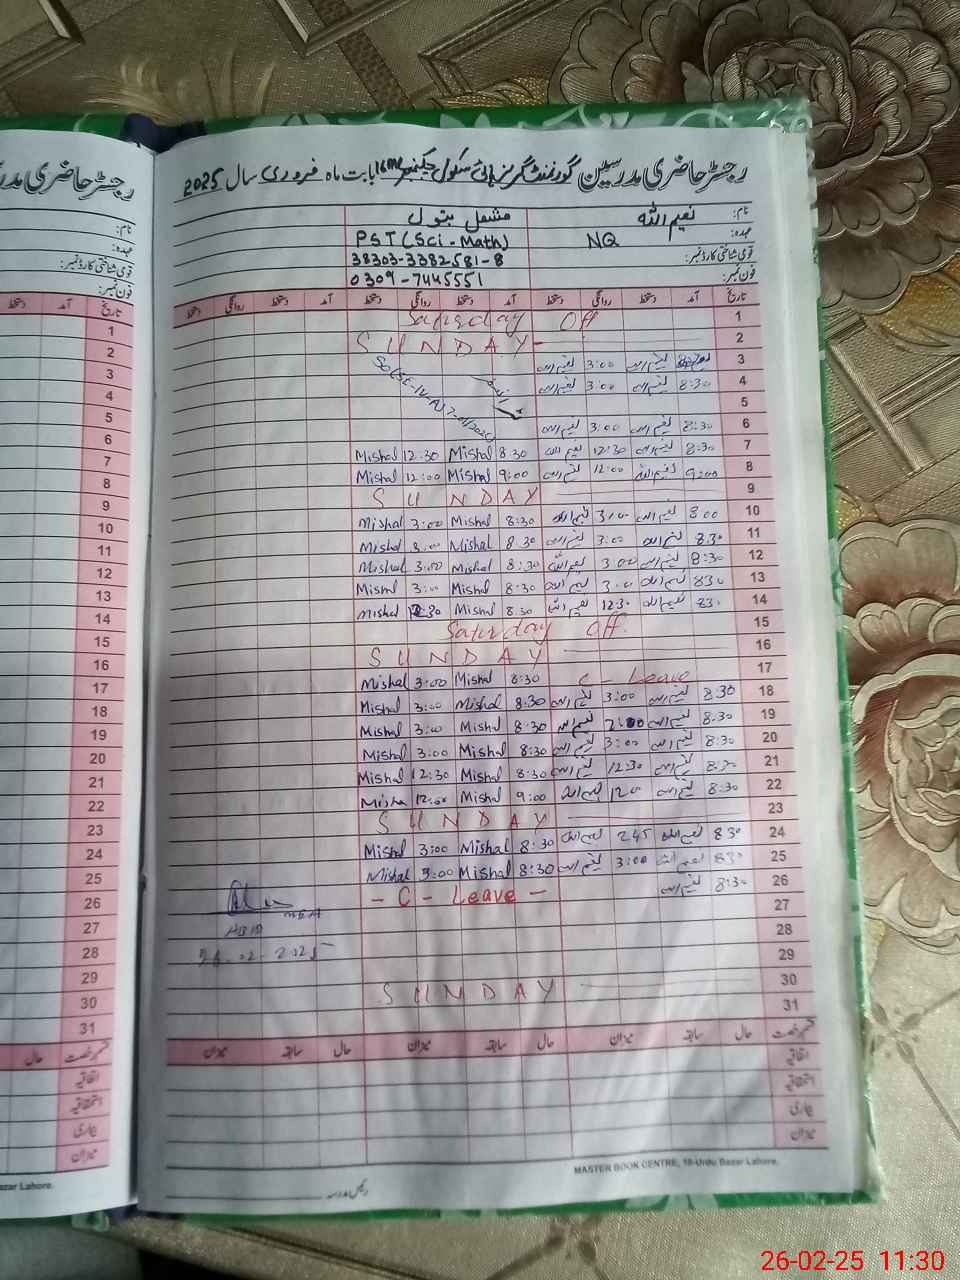 رجسٹر حاضری مدرسین گورنمنٹ گرلز ہائی سکول چکنمبر 16ML بابت ماہ فروری سال 2025
نام: نعیم اللہ مشعل بتول
عہدہ: NQ PST (Sci - Math)
قومی شناختی کارڈ نمبر: 38303-3382581-8
فون نمبر: 0309-7445551
تاریخ آمد دستخط روانگی دستخط آمد دستخط روانگی دستخط آمد دستخط روانگی دستخط
1 Saturday Off
2 SUNDAY
3 نعیم اللہ 3:00 نعیم اللہ
4 8:30 نعیم اللہ 3:00 نعیم اللہ
5
6 8:30 نعیم اللہ 3:00 نعیم اللہ
7 8:30 نعیم اللہ 12:30 نعیم اللہ 8:30 Mishal 12:30 Mishal
8 9:00 نعیم اللہ 12:00 نعیم اللہ 9:00 Mishal 12:00 Mishal
9 SUNDAY
10 8:00 نعیم اللہ 3:00 نعیم اللہ 8:30 Mishal 3:00 Mishal
11 8:30 نعیم اللہ 3:00 نعیم اللہ 8:30 Mishal 3:00 Mishal
12 8:30 نعیم اللہ 3:00 نعیم اللہ 8:30 Mishal 3:00 Mishal
13 830 نعیم اللہ 3:00 نعیم اللہ 8:30 Mishal 3:00 Mishal
14 830 نعیم اللہ 12:30 نعیم اللہ 8:30 Mishal Mishal
15 Saturday Off.
16 SUNDAY
17 C - Leave 8:30 Mishal 3:00 Mishal
18 8:30 نعیم اللہ 3:00 نعیم اللہ 8:30 Mishal 3:00 Mishal
19 8:30 نعیم اللہ نعیم اللہ 8:30 Mishal 3:00 Mishal
20 8:30 نعیم اللہ 3:00 نعیم اللہ 8:30 Mishal 3:00 Mishal
21 8:30 نعیم اللہ 12:30 نعیم اللہ 8:30 Mishal 12:30 Mishal
22 8:30 نعیم اللہ نعیم اللہ 9:00 Mishal 12:00 Misha
23 SUNDAY
24 8 30 نعیم اللہ 245 نعیم اللہ 8:30 Mishal 3:00 Mishal
25 830 نعیم اللہ 3:00 نعیم اللہ 8:30 Mishal 3:00 Mishal
26 8:30 نعیم اللہ - C - Leave -
27
28
29
30 SUNDAY
31
قسم رخصت حال سابقہ میزان حال سابقہ میزان حال سابقہ میزان
اتفاقیہ
استحقاقیہ
بیماری
میزان
MASTER BOOK CENTRE, 18-Urdu Bazar Lahore.
رئیس مدرسہ
رجسٹر حاضری مدر
نام:
عہدہ:
قومی شناختی کارڈ نمبر:
فون نمبر:
تاریخ آمد دستخط
1
2
3
4
5
6
7
8
9
10
11
12
13
14
15
16
17
18
19
20
21
22
23
24
25
26
27
28
29
30
31
قسم رخصت حال
اتفاقیہ
استحقاقیہ
بیماری
میزان
azar Lahore.
26-02-25 11:30